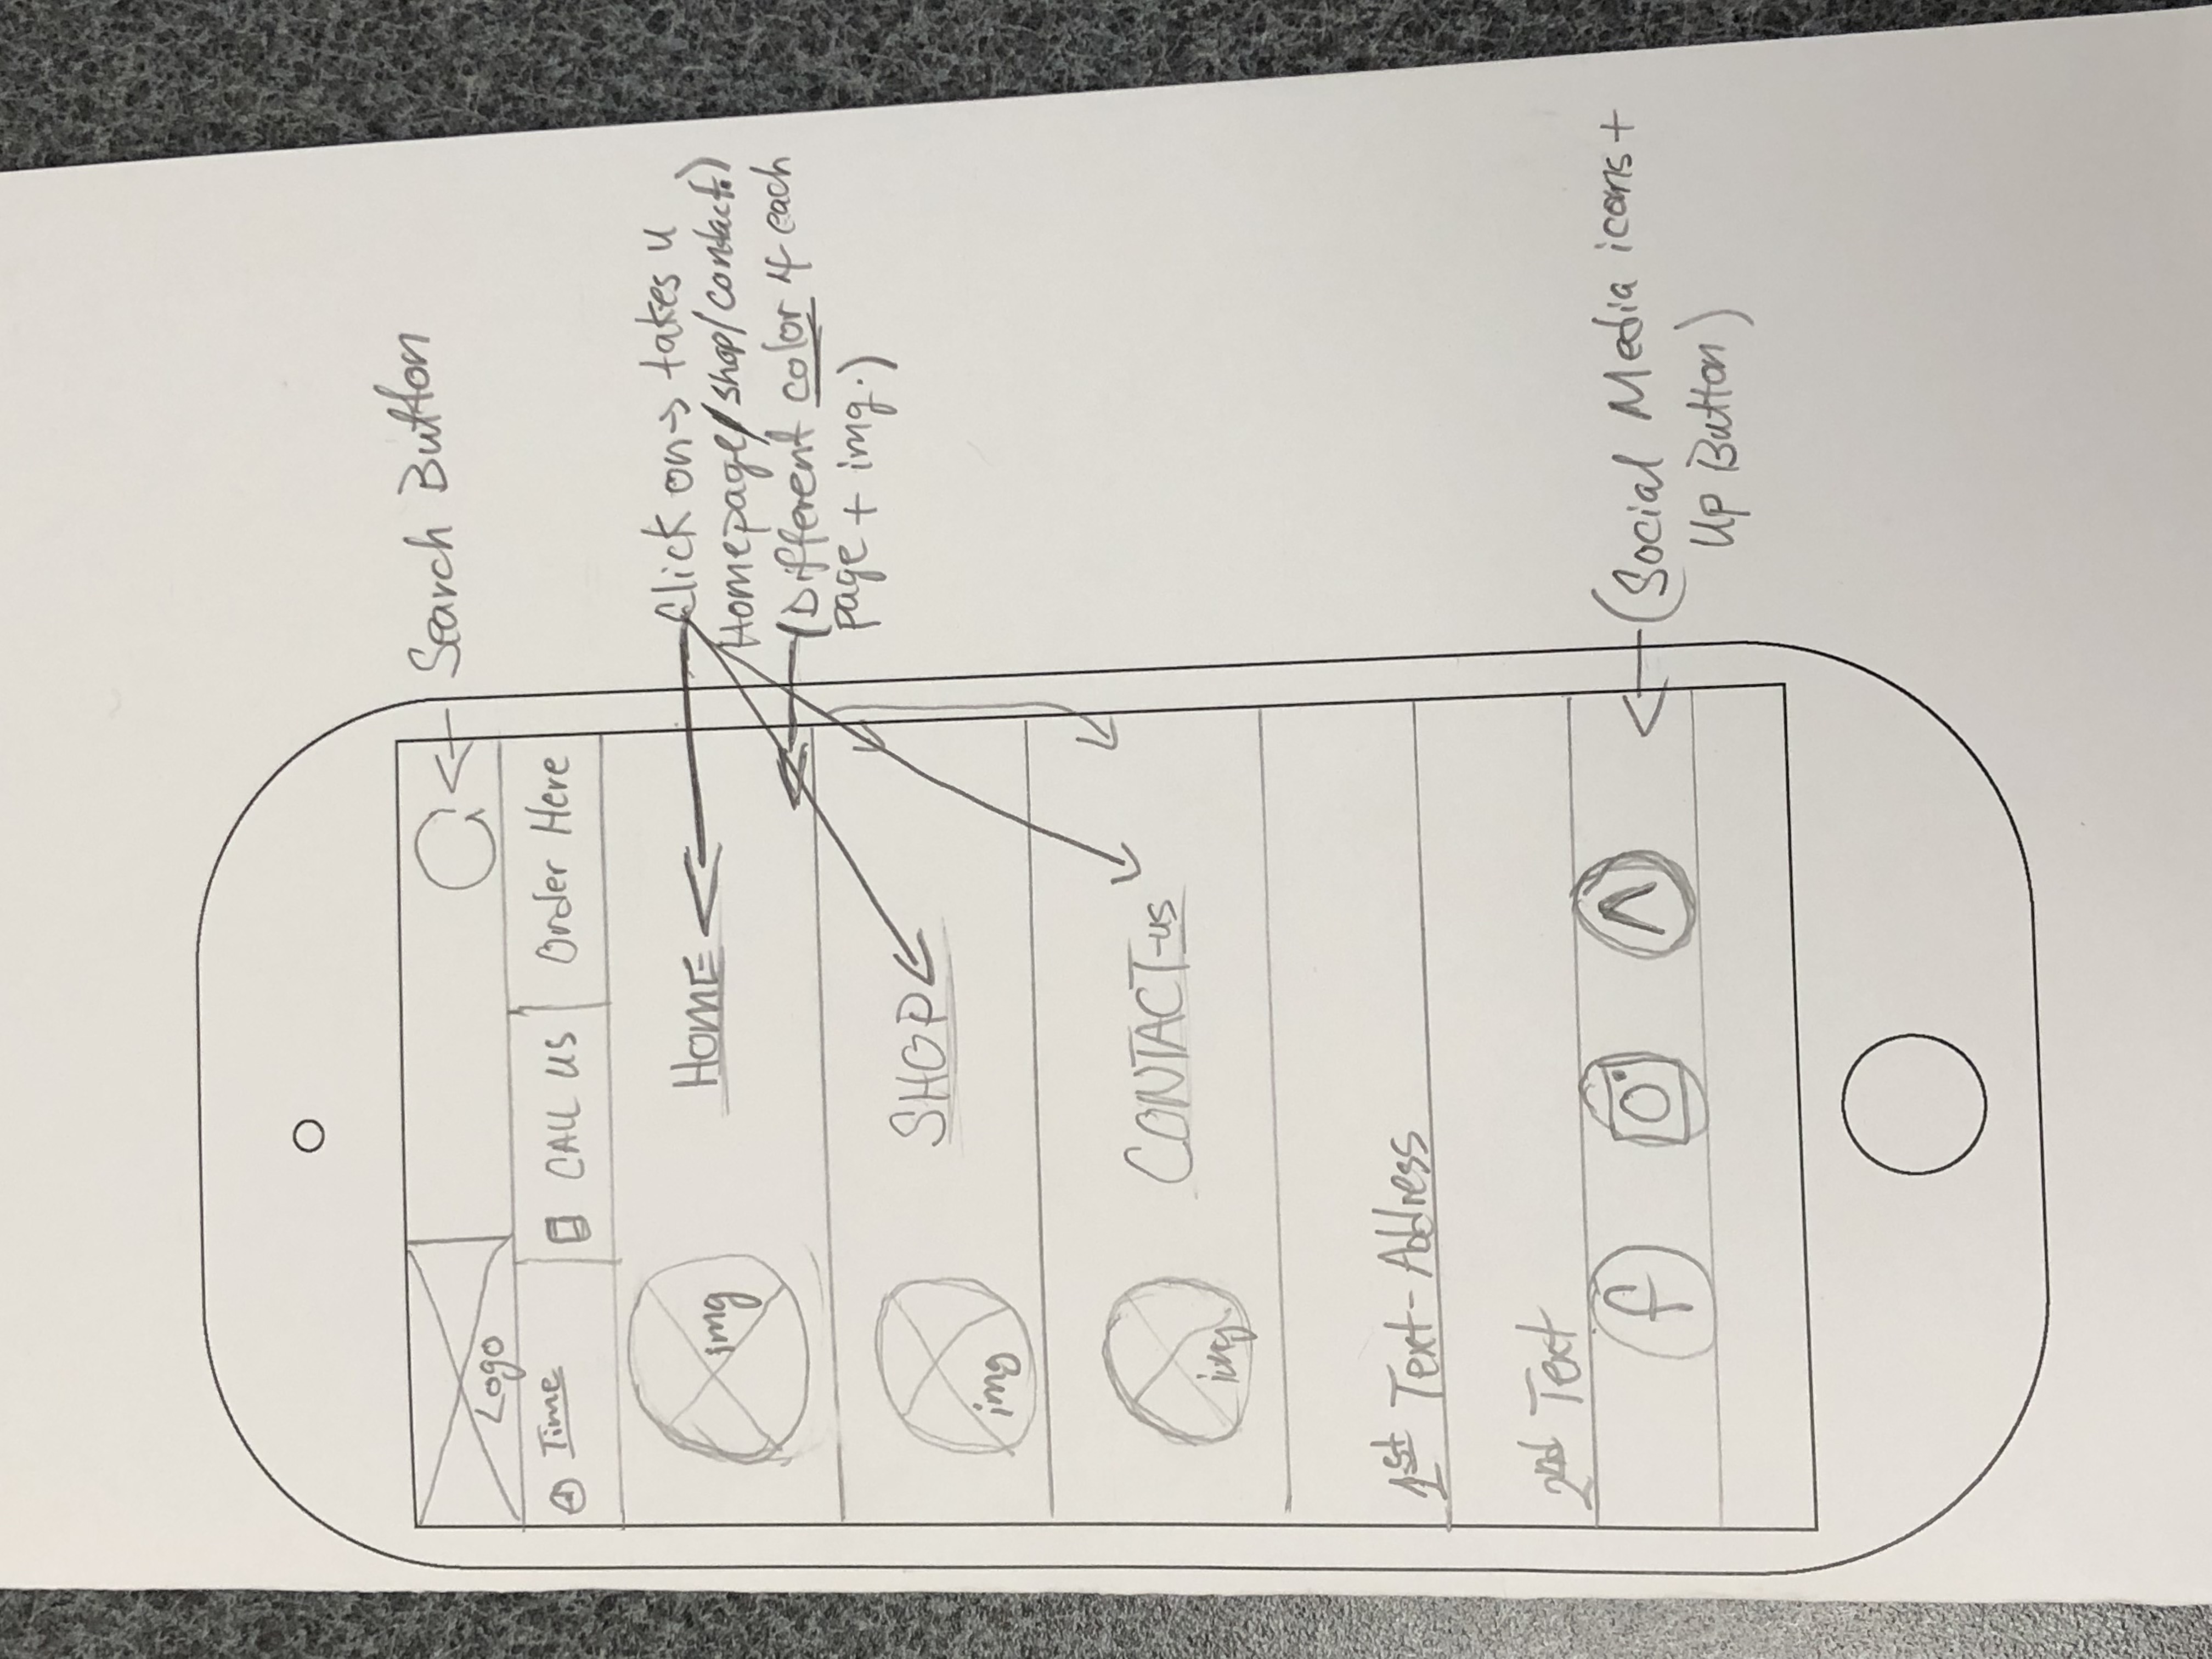 Search Button
Logo
Time
CALL US
Order Here
Click on → takes u
Homepage/shop/contact.)
(Different color 4 each
page + img.)
img
HOME
img
SHOP
img
CONTACT-us
1st Text-Address
2nd Text
f
(Social Media icons +
Up Button)